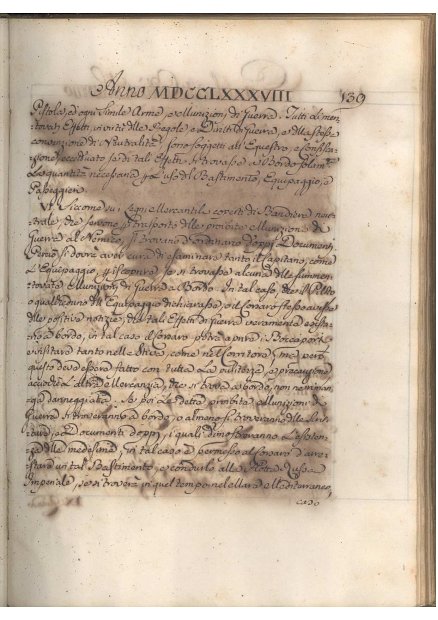 Anno MDCCLXXXVIII 139
Pistole, ed ogni simile Arme, e Munizioni di Guerra. Tutti li men-
tovati Effetti, in virtù delle Regole, e Diritti di Guerra, e della stessa
convenzione di Neutralità, sono soggetti all' Equestro, e Confisca-
zione, eccettuato se di tali Effetti si trovasse a Bordo solam.te
La quantità necessaria p L'uso del Bastimento, Equipaggio, e
Passeggieri.
VI. Siccome su i Legni Mercantili coperti di Bandiere neu-
trale, che servono p trasporto delle proibite Munizioni di
Guerra al Nemico, si trovano d'ordinario doppj Documenti,
Perciò si dovrà aver cura di esaminare tanto il Capitano, come
L'Equipaggio, p iscoprire se si trovasse alcuna delle summen-
tovate Munizioni di Guerra a Bordo. In tal caso, che il
o qualcheduno dell' Equipaggio dichiarasse, o il Corsaro stesso avesse
delle positive notizie, che tali Effetti di Guerra veramente esista-
no a bordo, in tal caso il Corsaro potrà aprire i Boccaporti,
e visitare tanto nella Stiva, come nel ma però
questo deve essere fatto con tutta La pulitezza, e precauzione
acciochè L'altra Mercanzia, che si trova a bordo, non rimanga
danneggiata. Se poi Le dette proibite Munizioni di
Guerra si troveranno a bordo, o almeno si troveranno delle
o Documenti doppj, i quali dimostreranno L'esisten-
za delle medesime, in tal caso è permesso al Corsaro d'arre-
stare un tal Bastimento, e condurlo alla Flotta Russa
Imperiale, se si troverà in quel tempo nel Mare Mediterraneo,
caso